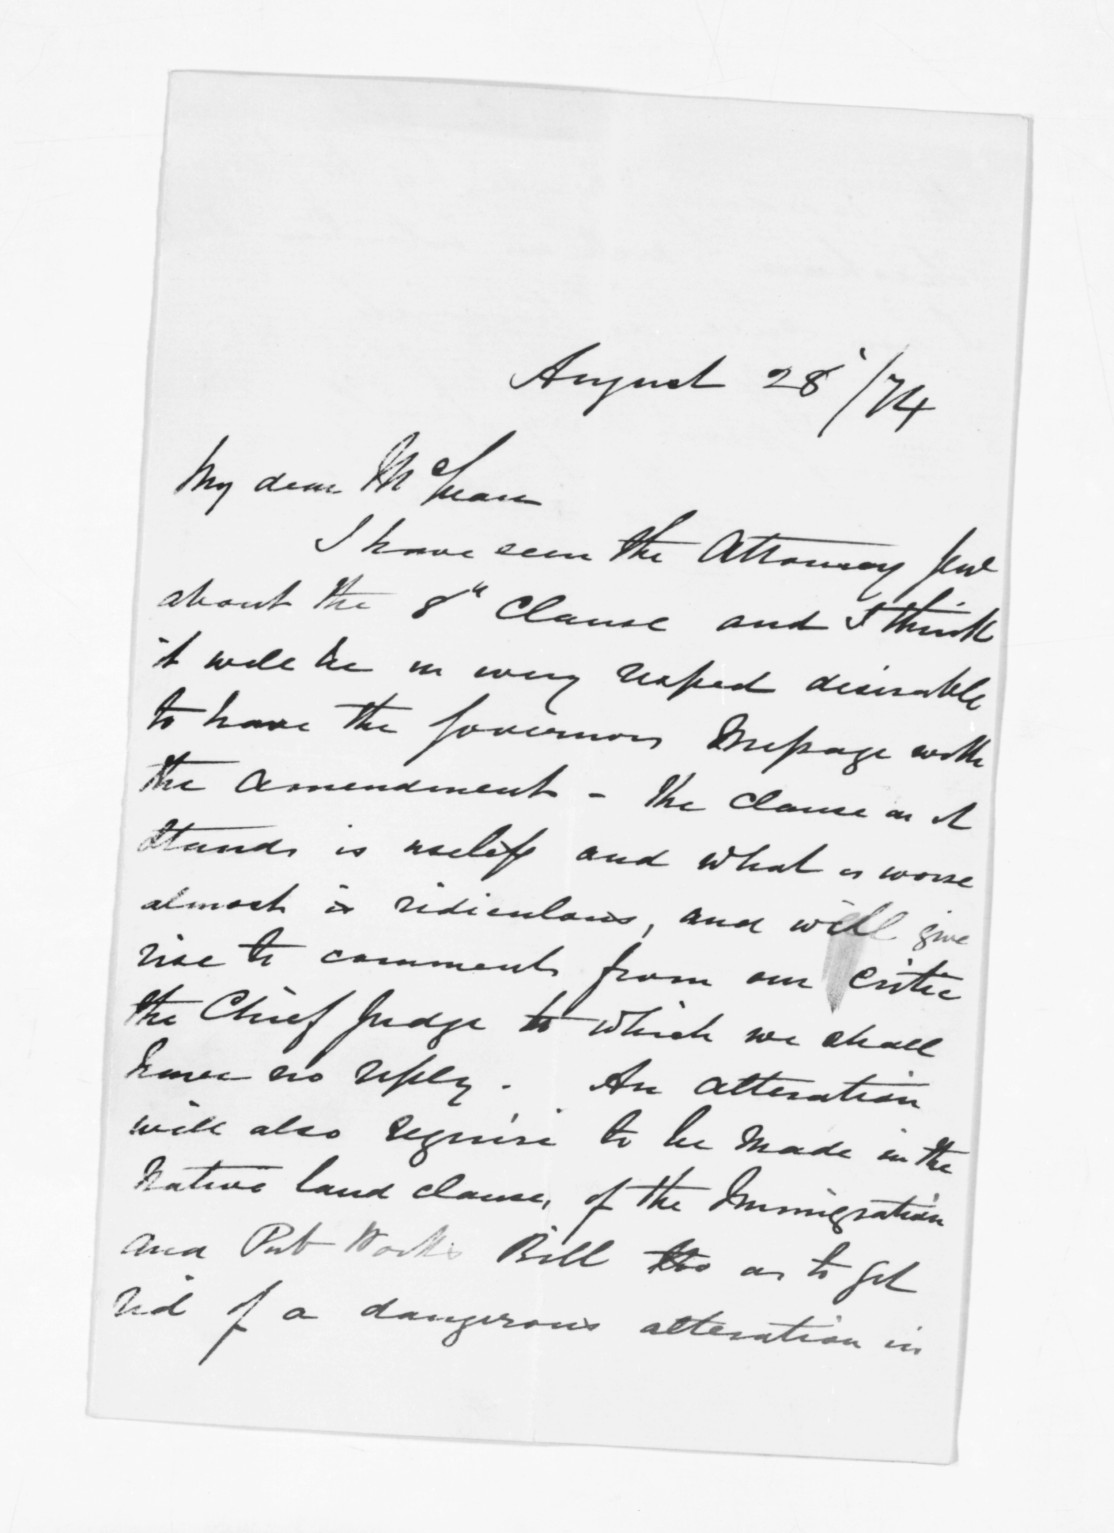 August 28'/74
My dear McLean
I have seen the Attorney Genl
about the 8th Clause and I think
it will be in every respect desirable
to have the Governors Message with
the amendment - The clause as it
stands is useless and what is worse
almost is ridiculous, and will give
rise to comments from our critic
the Chief Judge to which we shall
have no reply. An alteration
will also require to be made in the
Native land clause, of the Immigration
and Pub Works Bill so as to get
rid of a dangerous alteration in